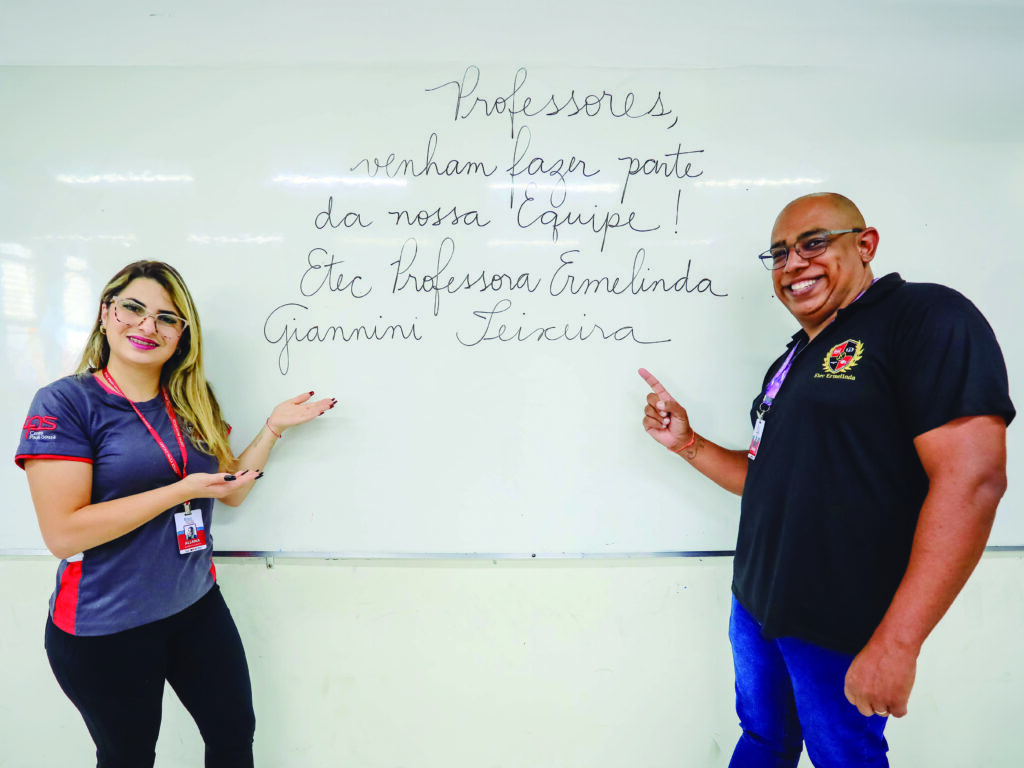 Professores,
venham fazer parte
da nossa Equipe!
Etec Professora Ermelinda
Giannini Teixeira
CPS
Etec Ermelinda